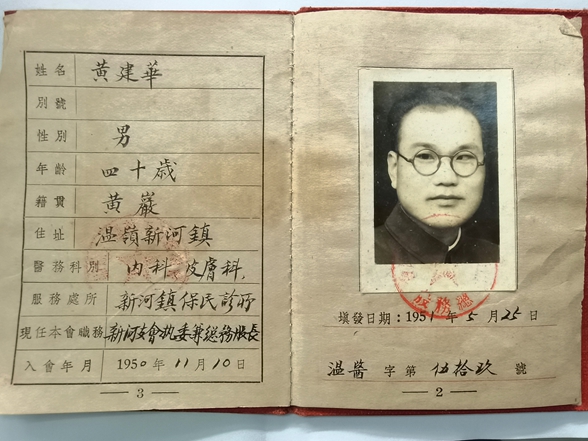 姓名 黄建華
别號
性别 男
年齡 四十歲
籍貫 黄巖
住址 温嶺新河鎮
醫務科别 内科、皮膚科.
服務處所 新河鎮保民診所
現任本會職務 新河支會執委兼總務股長
入會年月 1950年11月10日
3
填發日期：1951年5月25日
温醫字第 伍拾玖 號
2